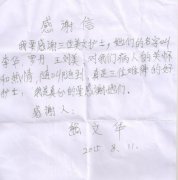 感谢信
我要感谢三位美女护士，她们的名字叫
李华 罗丹 王利美，对我们病人的关怀
和热情，随叫随到，真是三位难得的好
护士，我是真心的感谢她们。
感谢人：
张文华
2015.8.11.